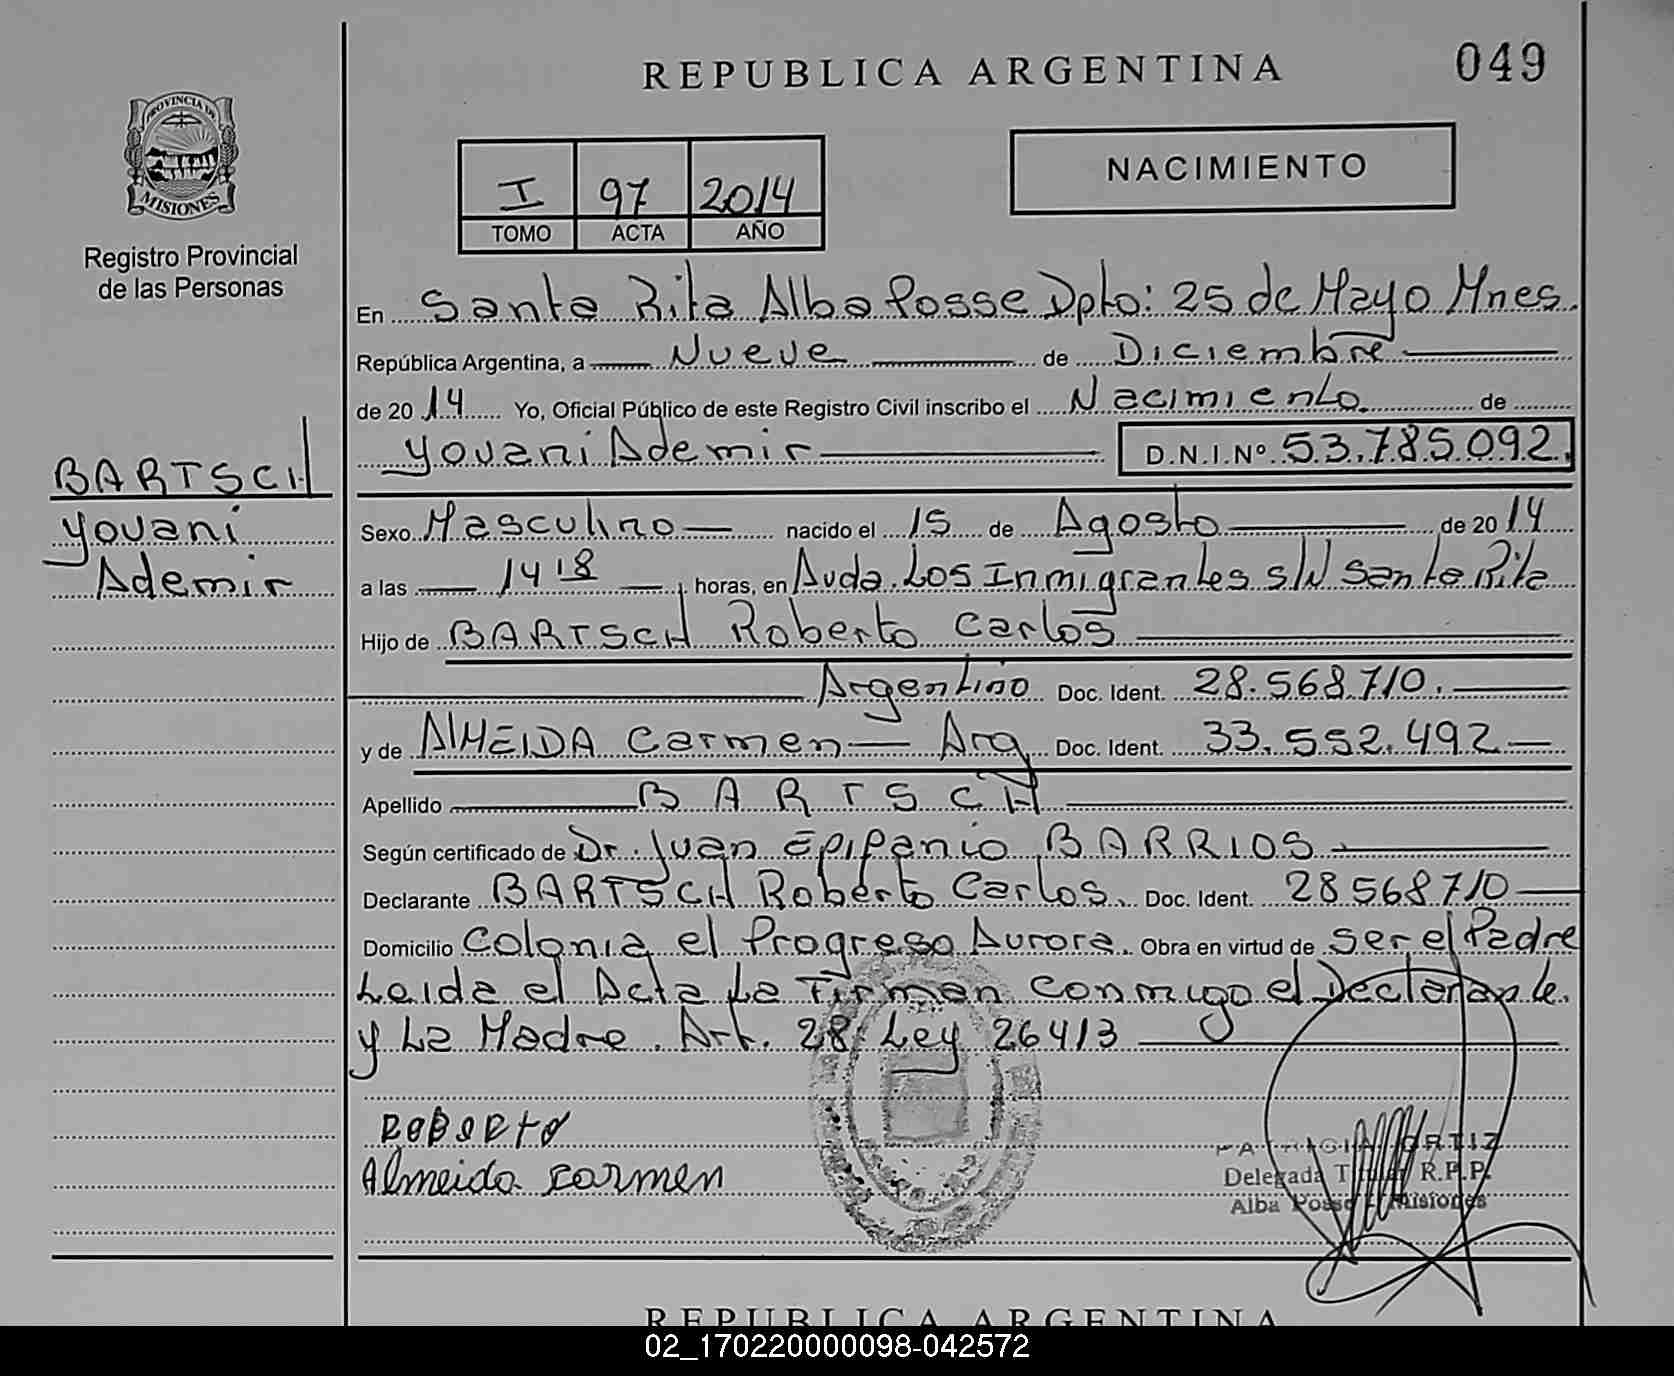 REPUBLICA ARGENTINA
049
PROVINCIA DE
MISIONES
Registro Provincial
de las Personas
I 97 2014
TOMO ACTA AÑO
NACIMIENTO
En Santa Rita Alba Posse Dpto: 25 de Mayo Mnes.
República Argentina, a Nueve de Diciembre
de 2014 Yo, Oficial Público de este Registro Civil inscribo el Nacimiento de
Yovani Ademir D.N.I.Nº 53.785.092.
BARTSCH
Yovani
Ademir
Sexo Masculino nacido el 15 de Agosto de 2014
a las 14 18 horas, en Avda. Los Inmigrantes s/N Santa Rita
Hijo de BARTSCH Roberto Carlos
Argentino Doc. Ident. 28.568.710.
y de AlMEIDA Carmen Arg Doc. Ident. 33.552.492
Apellido BARTSCH
Según certificado de Dr. Juan Epifanio BARRIOS
Declarante BARTSCH Roberto Carlos. Doc. Ident. 28568710
Domicilio Colonia el Progreso Aurora. Obra en virtud de ser el Padre
Leida el Acta La Firman conmigo el Declarante.
y La Madre. Art. 28 Ley 26413
ROBERTO
Almeida carmen
PATRICIA ORTIZ
Delegada R.P.P.
Alba Posse - Misiones
REPUBLICA ARGENTINA
02_170220000098-042572